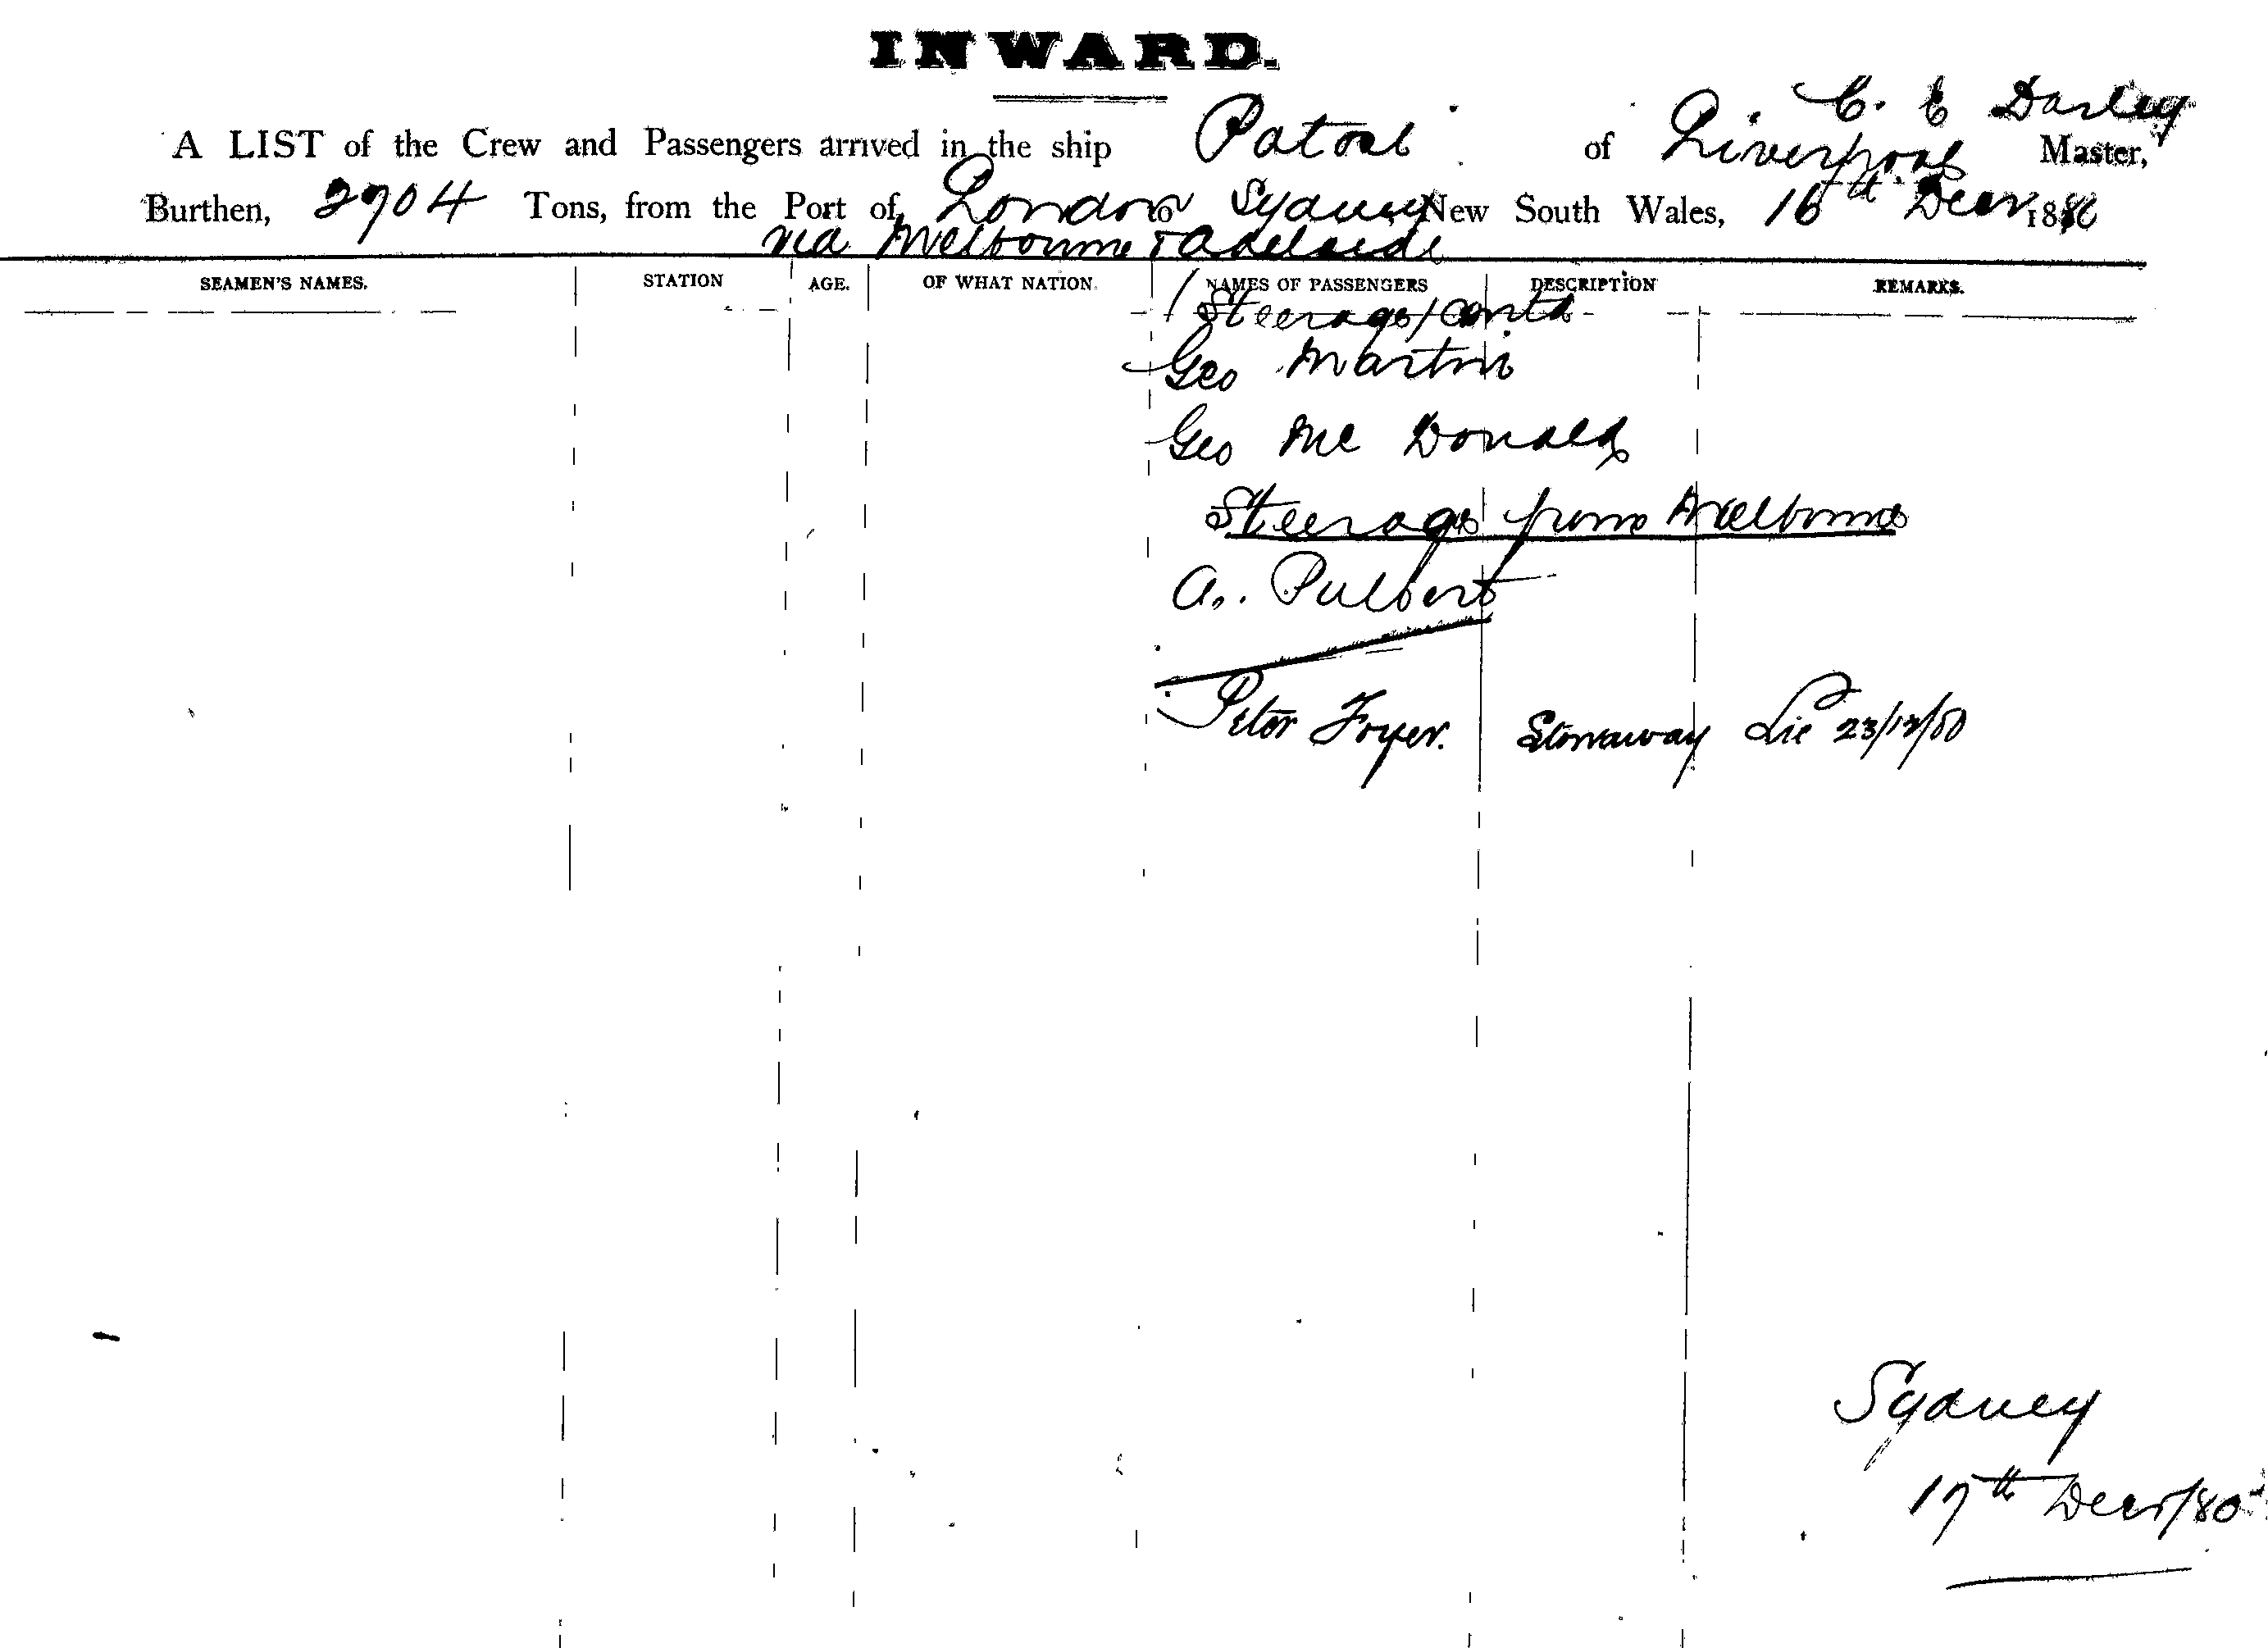 INWARD.
C. E Darley
A LIST of the Crew and Passengers arrived in the ship Patoel of Liverpool Master,
Burthen, 2904 Tons, from the Port of London to Sydney, New South Wales, 16th Decr 1880
via Melbourne & Adelaide
SEAMEN'S NAMES. STATION AGE. OF WHAT NATION. NAMES OF PASSENGERS DESCRIPTION REMARKS.
Steerage / contd
Geo Martin
Geo Mc Donald
Steerage from Melbourne
A. Pulbert
Peter Fryer. Stowaway 23/12/80
Sydney
17th Decr/80